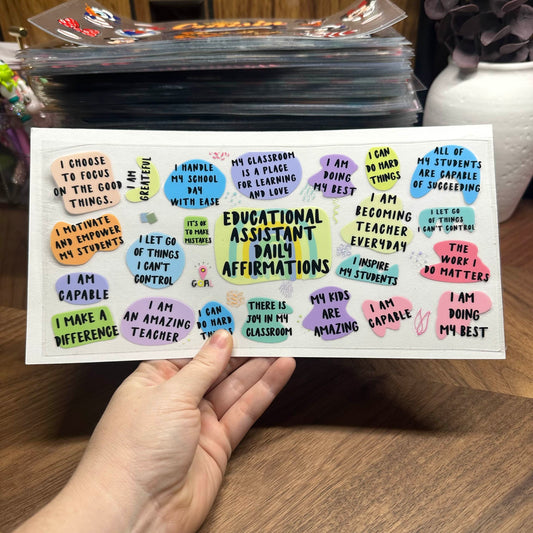 I CHOOSE
TO FOCUS
ON THE GOOD
THINGS.
I AM
GRATEFUL
I HANDLE
MY SCHOOL
DAY
WITH EASE
MY CLASSROOM
IS A PLACE
FOR LEARNING
AND LOVE
I AM
DOING
MY BEST
I CAN
DO HARD
THINGS
ALL OF
MY STUDENTS
ARE CAPABLE
OF SUCCEEDING
I MOTIVATE
AND EMPOWER
MY STUDENTS
I LET GO
OF THINGS
I CAN'T
CONTROL
IT'S OK
TO MAKE
MISTAKES
EDUCATIONAL
ASSISTANT
DAILY
AFFIRMATIONS
I AM
BECOMING
TEACHER
EVERYDAY
I LET GO OF
THINGS
I CAN'T CONTROL
I INSPIRE
MY STUDENTS
THE
WORK I
DO MATTERS
I AM
CAPABLE
I MAKE A
DIFFERENCE
I AM
AN AMAZING
TEACHER
I CAN
DO HARD
THERE IS
JOY IN MY
CLASSROOM
MY KIDS
ARE
AMAZING
I AM
CAPABLE
I AM
DOING
MY BEST